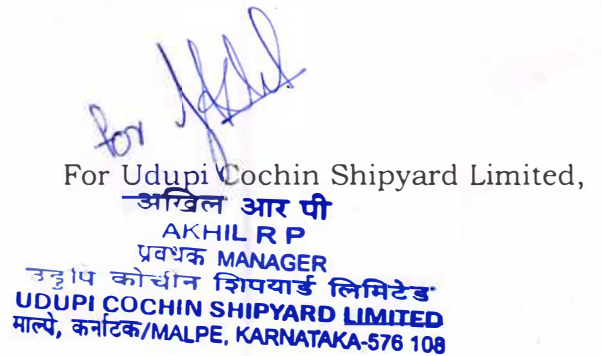 for
For Udupi Cochin Shipyard Limited,
अखिल आर पी
AKHIL R P
प्रबंधक MANAGER
उडुपि कोचीन शिपयार्ड लिमिटेड
UDUPI COCHIN SHIPYARD LIMITED
माल्पे, कर्नाटक/MALPE, KARNATAKA-576 108